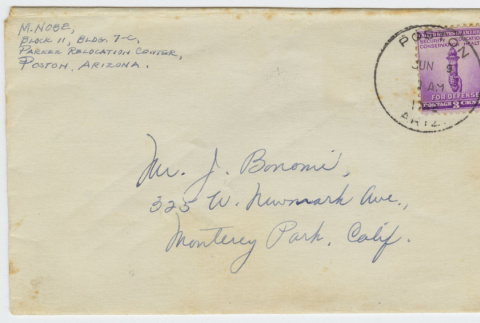 M. NOBE,
BLOCK 11, BLDG. 7-C,
PARKER RELOCATION CENTER,
POSTON, ARIZONA.
POSTON
JUN 9
AM
ARIZ.
SECURITY EDUCATION
CONSERVATION HEALTH
FOR DEFENSE
POSTAGE 3 CENTS
Mr. J. Bonomi,
325 W. Newmark Ave.,
Monterey Park, Calif.